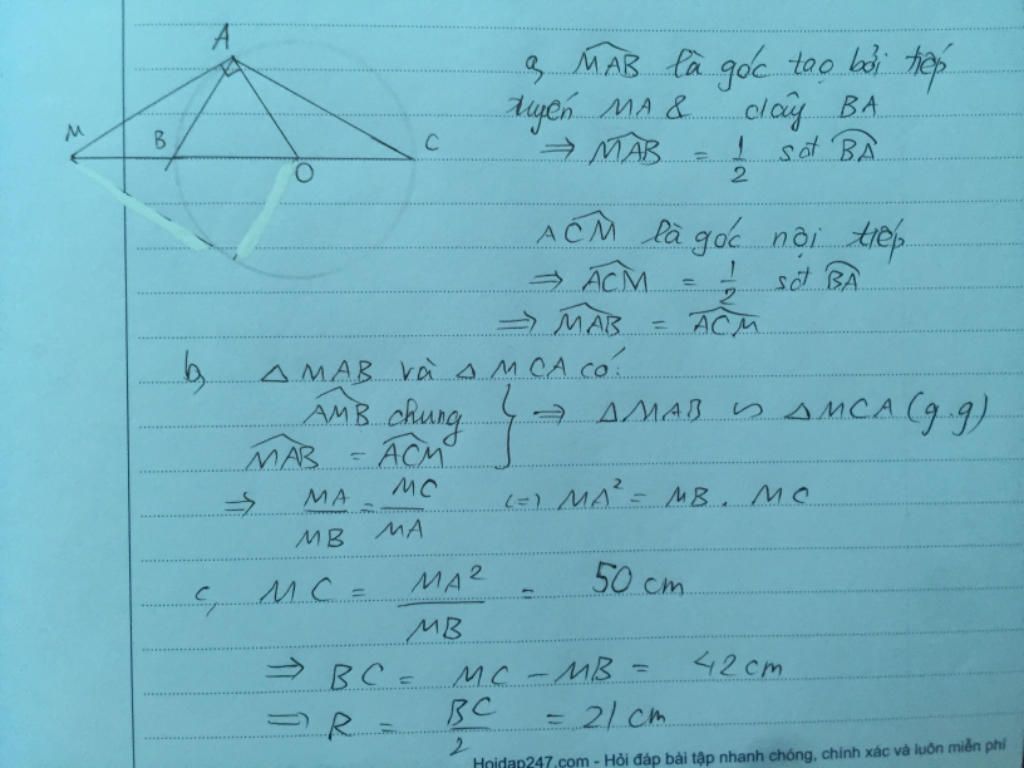 A
M
B
O
C
a, MAB là góc tạo bởi tiếp
tuyến MA & dây BA
=> MAB = 1/2 sđt BA
ACM là góc nội tiếp
=> ACM = 1/2 sđt BA
=> MAB = ACM
b, △MAB và △MCA có:
AMB chung
MAB = ACM
} => △MAB ∽ △MCA (g.g)
=> MA/MB = MC/MA <=> MA² = MB . MC
c, MC = MA²/MB = 50 cm
=> BC = MC - MB = 42 cm
=> R = BC/2 = 21 cm
Hoidap247.com - Hỏi đáp bài tập nhanh chóng, chính xác và luôn miễn phí